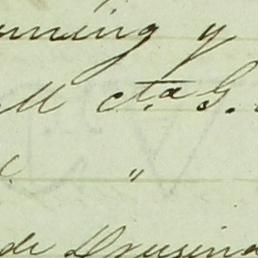 unning y
M cta G.
"
de Drusina